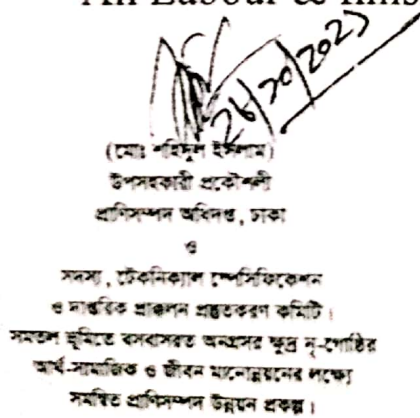 An Labour &
26/10/2023
(মোঃ শহিদুল ইসলাম)
উপসহকারী প্রকৌশলী
প্রাণিসম্পদ অধিদপ্তর, ঢাকা
ও
সদস্য, টেকনিক্যাল স্পেসিফিকেশন
ও দাপ্তরিক প্রাক্কলন প্রস্তুতকরণ কমিটি।
সমতল ভূমিতে বসবাসরত অনগ্রসর ক্ষুদ্র নৃ-গোষ্ঠির
আর্থ-সামাজিক ও জীবন মানোন্নয়নের লক্ষ্যে
সমন্বিত প্রাণিসম্পদ উন্নয়ন প্রকল্প।